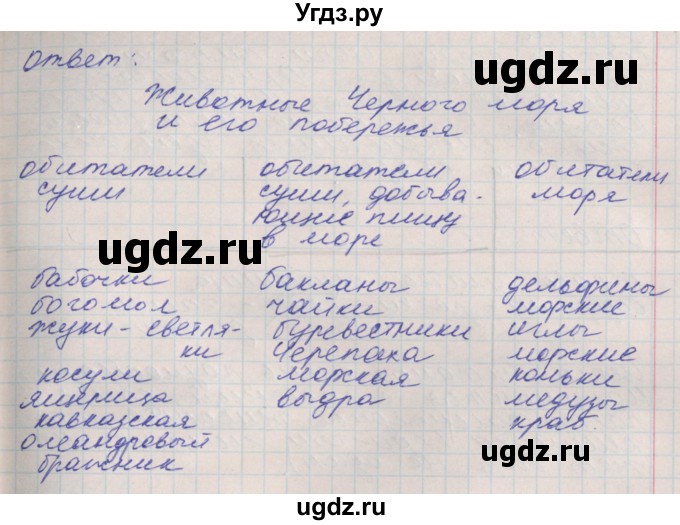 Угдз.ру
ответ:
Животные Черного моря
и его побережья
обитатели
суши
обитатели
суши, добыва-
ющие пищу
в море
обитатели
моря
бабочки
богомол
жуки-светля-
ки
косули
ящерица
кавказская
олеандровый
бражник
бакланы
чайки
буревестники
черепаха
морская
выдра
дельфины
морские
иглы
морские
коньки
медузы
краб.
ugdz.ru
ugdz.ru
ugdz.ru
ugdz.ru
ugdz.ru